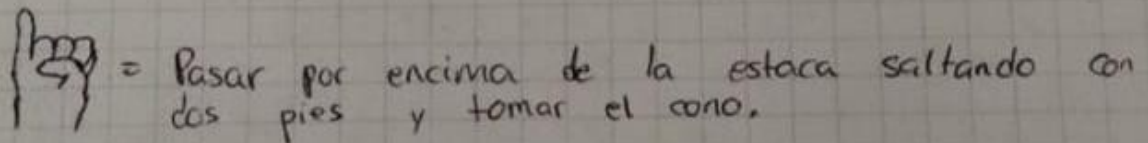 = Pasar por encima de la estaca saltando con
dos pies y tomar el cono.